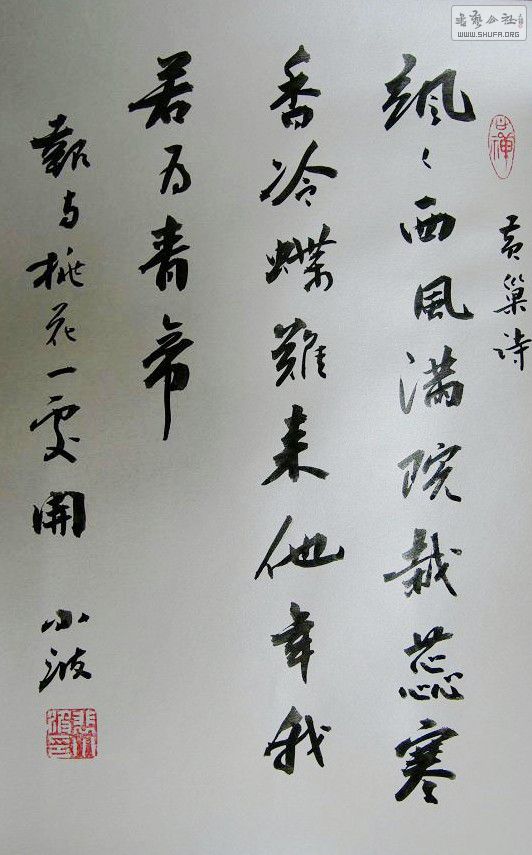 黄巢诗
飒々西风满院栽蕊寒
香冷蝶难来他年我
若为青帝
报与桃花一处開
小波
书艺公社
WWW.SHUFA.ORG